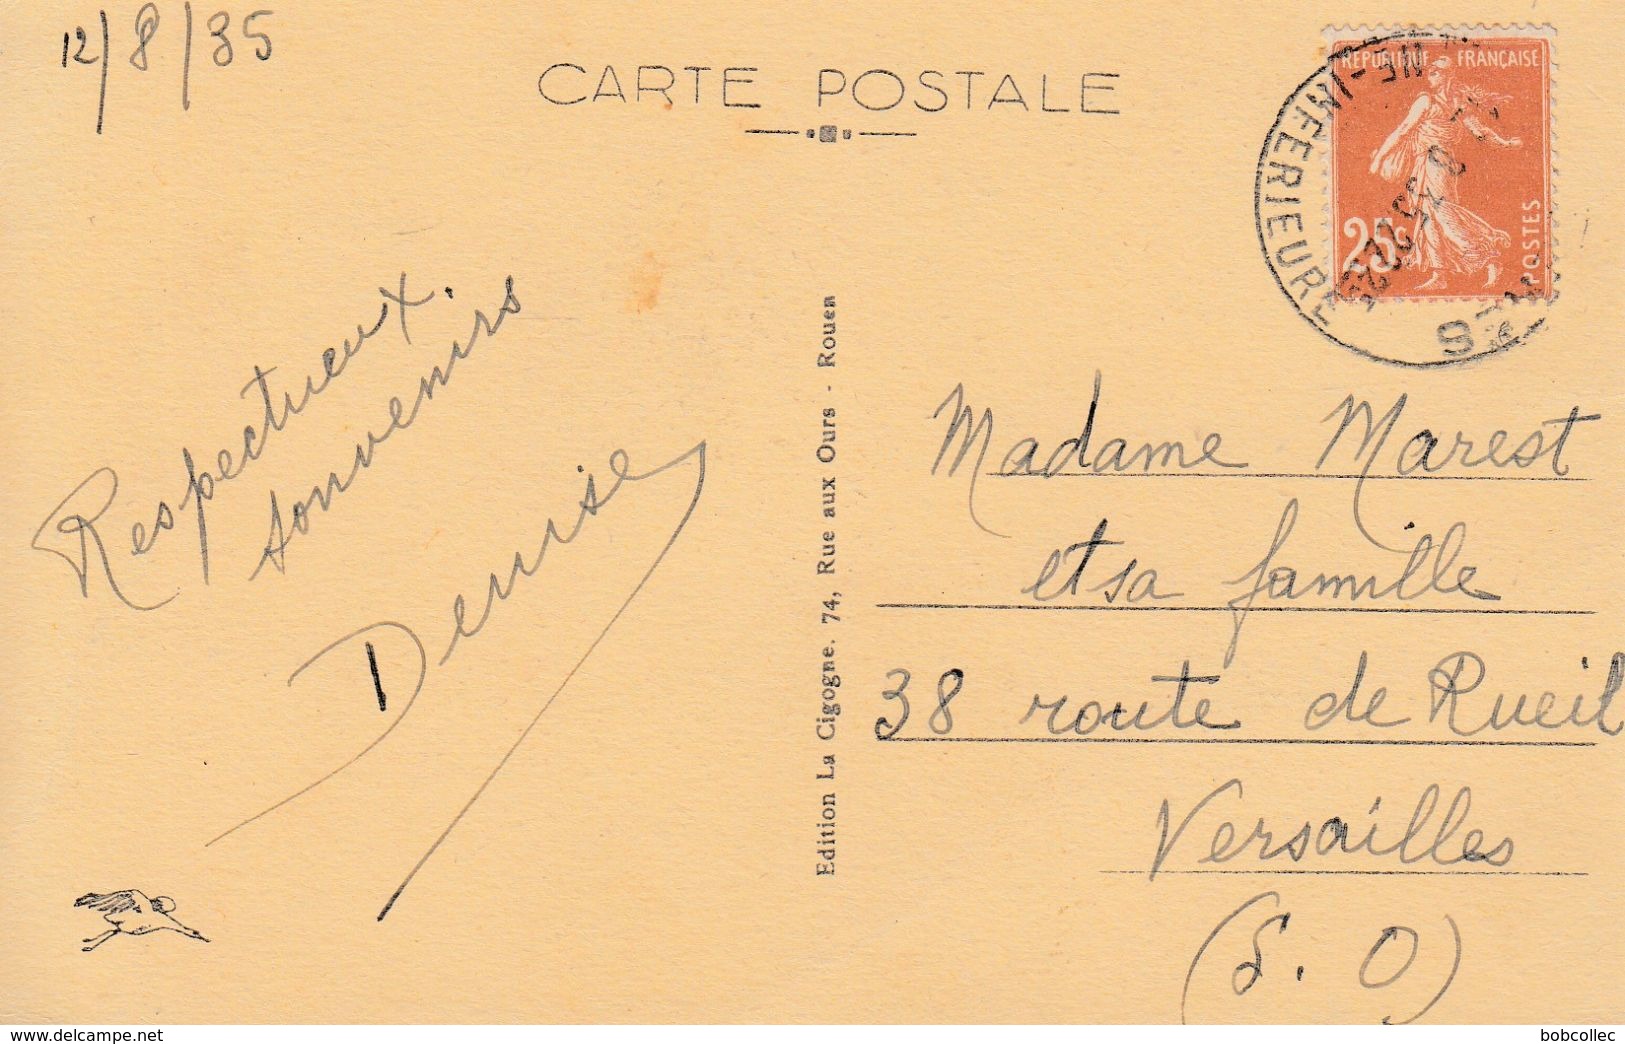 12/8/35
CARTE POSTALE
REPUBLIQUE FRANÇAISE
25c
POSTES
NE-INFERIEURE
Respectueux
souvenirs
Denise
Edition La Cigogne. 74, Rue aux Ours - Rouen
Madame Marest
et sa famille
38 route de Rueil
Versailles
(S. O)
delcampe.net
bobcollec